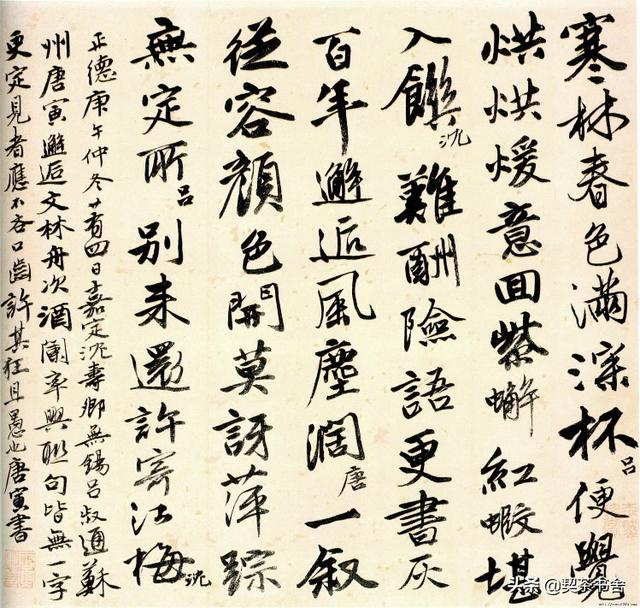 寒林春色滿深杯吕便覺
烘烘煖意回紫蠏紅蝦堪
入饌沈難酬險語更書灰
百年邂逅風塵濶唐一叙
從容顏色開莫訝萍踪
無定所吕别来還許寄江梅沈
正德庚午仲冬廿有四日嘉定沈壽卿無錫吕叔通蘇
州唐寅邂逅文林舟次酒闌率興聯句皆無一字
更定見者應不吝口齒許其狂且愚也唐寅書
头条 @契茶书舍